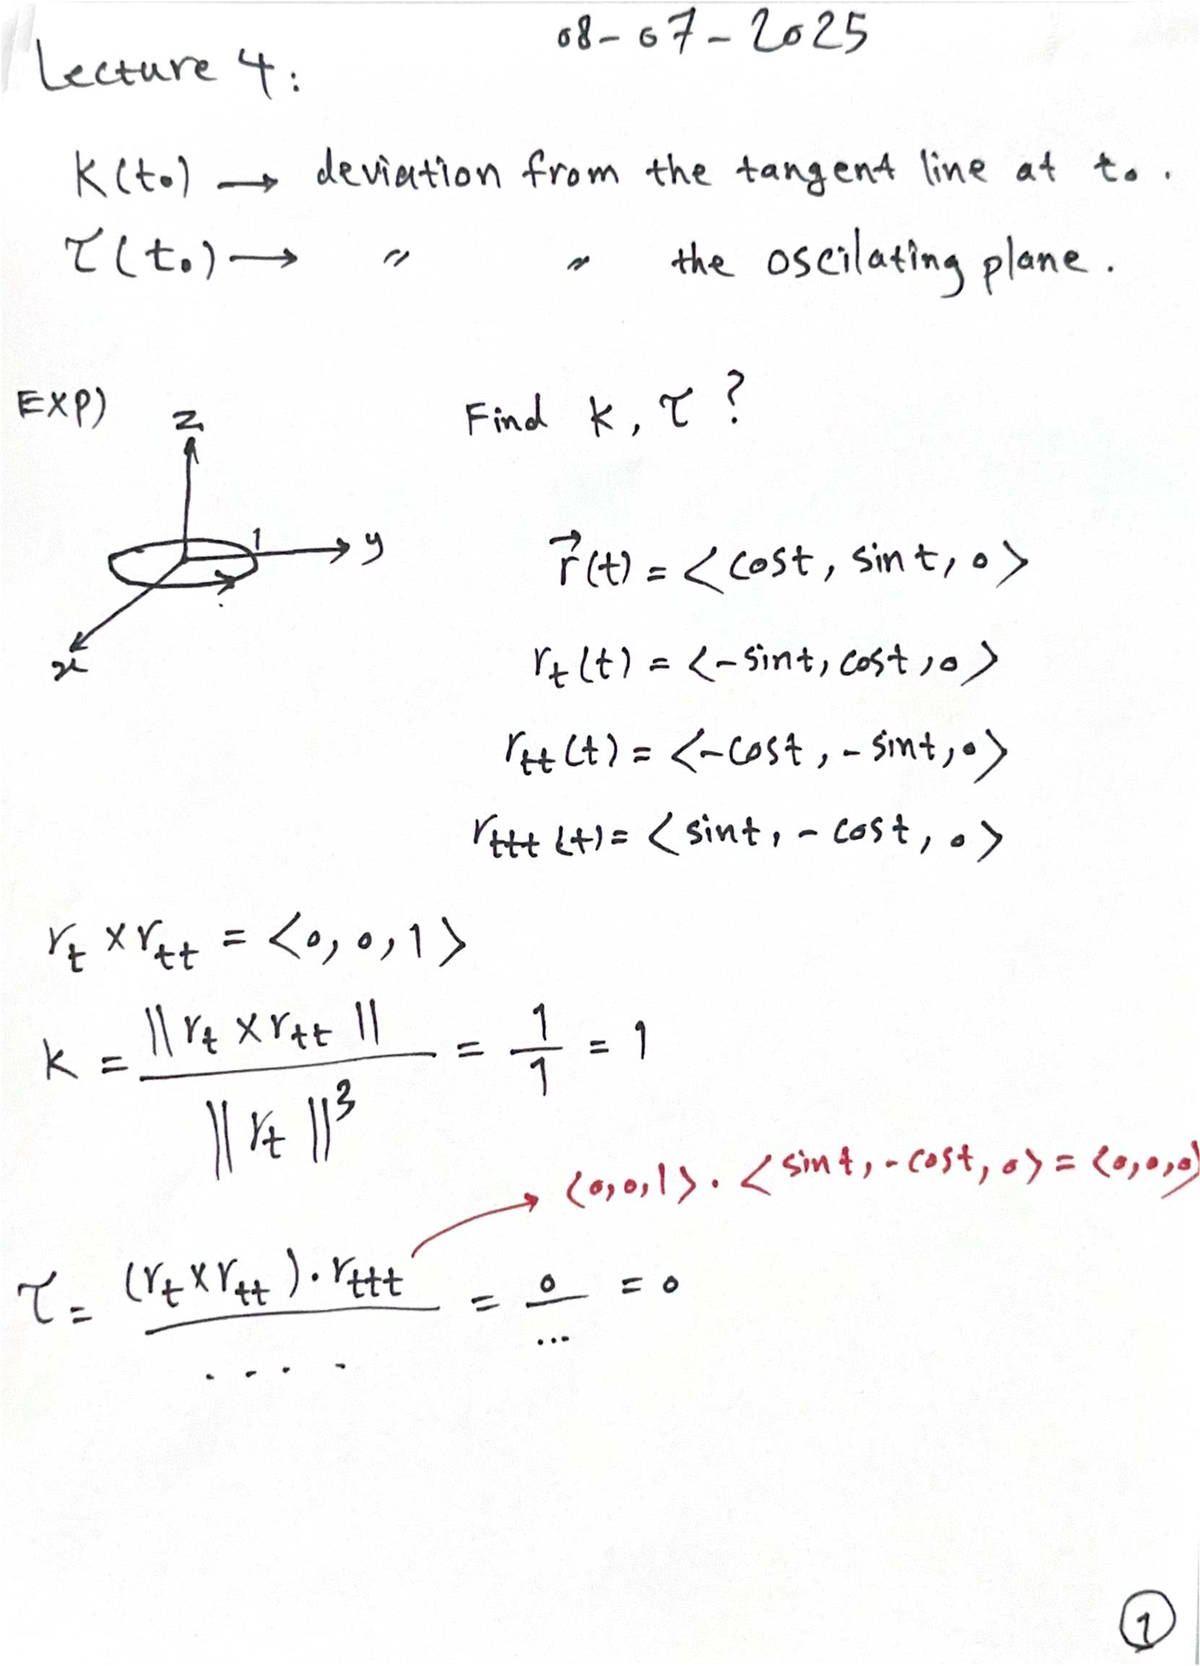 08-07-2025
Lecture 4:
K(t₀) → deviation from the tangent line at t₀.
τ(t₀) → " " the oscilating plane.
EXP)
Find K, τ ?
z
1
y
x
r⃗(t) = <cost, sint, 0>
rₜ(t) = <-sint, cost, 0>
rₜₜ(t) = <-cost, -sint, 0>
rₜₜₜ(t) = <sint, -cost, 0>
rₜ × rₜₜ = <0, 0, 1>
K = ||rₜ × rₜₜ|| / ||rₜ||³ = 1/1 = 1
<0,0,1> . <sint, -cost, 0> = <0,0,0>
τ = (rₜ × rₜₜ) . rₜₜₜ / .... = 0/... = 0
1